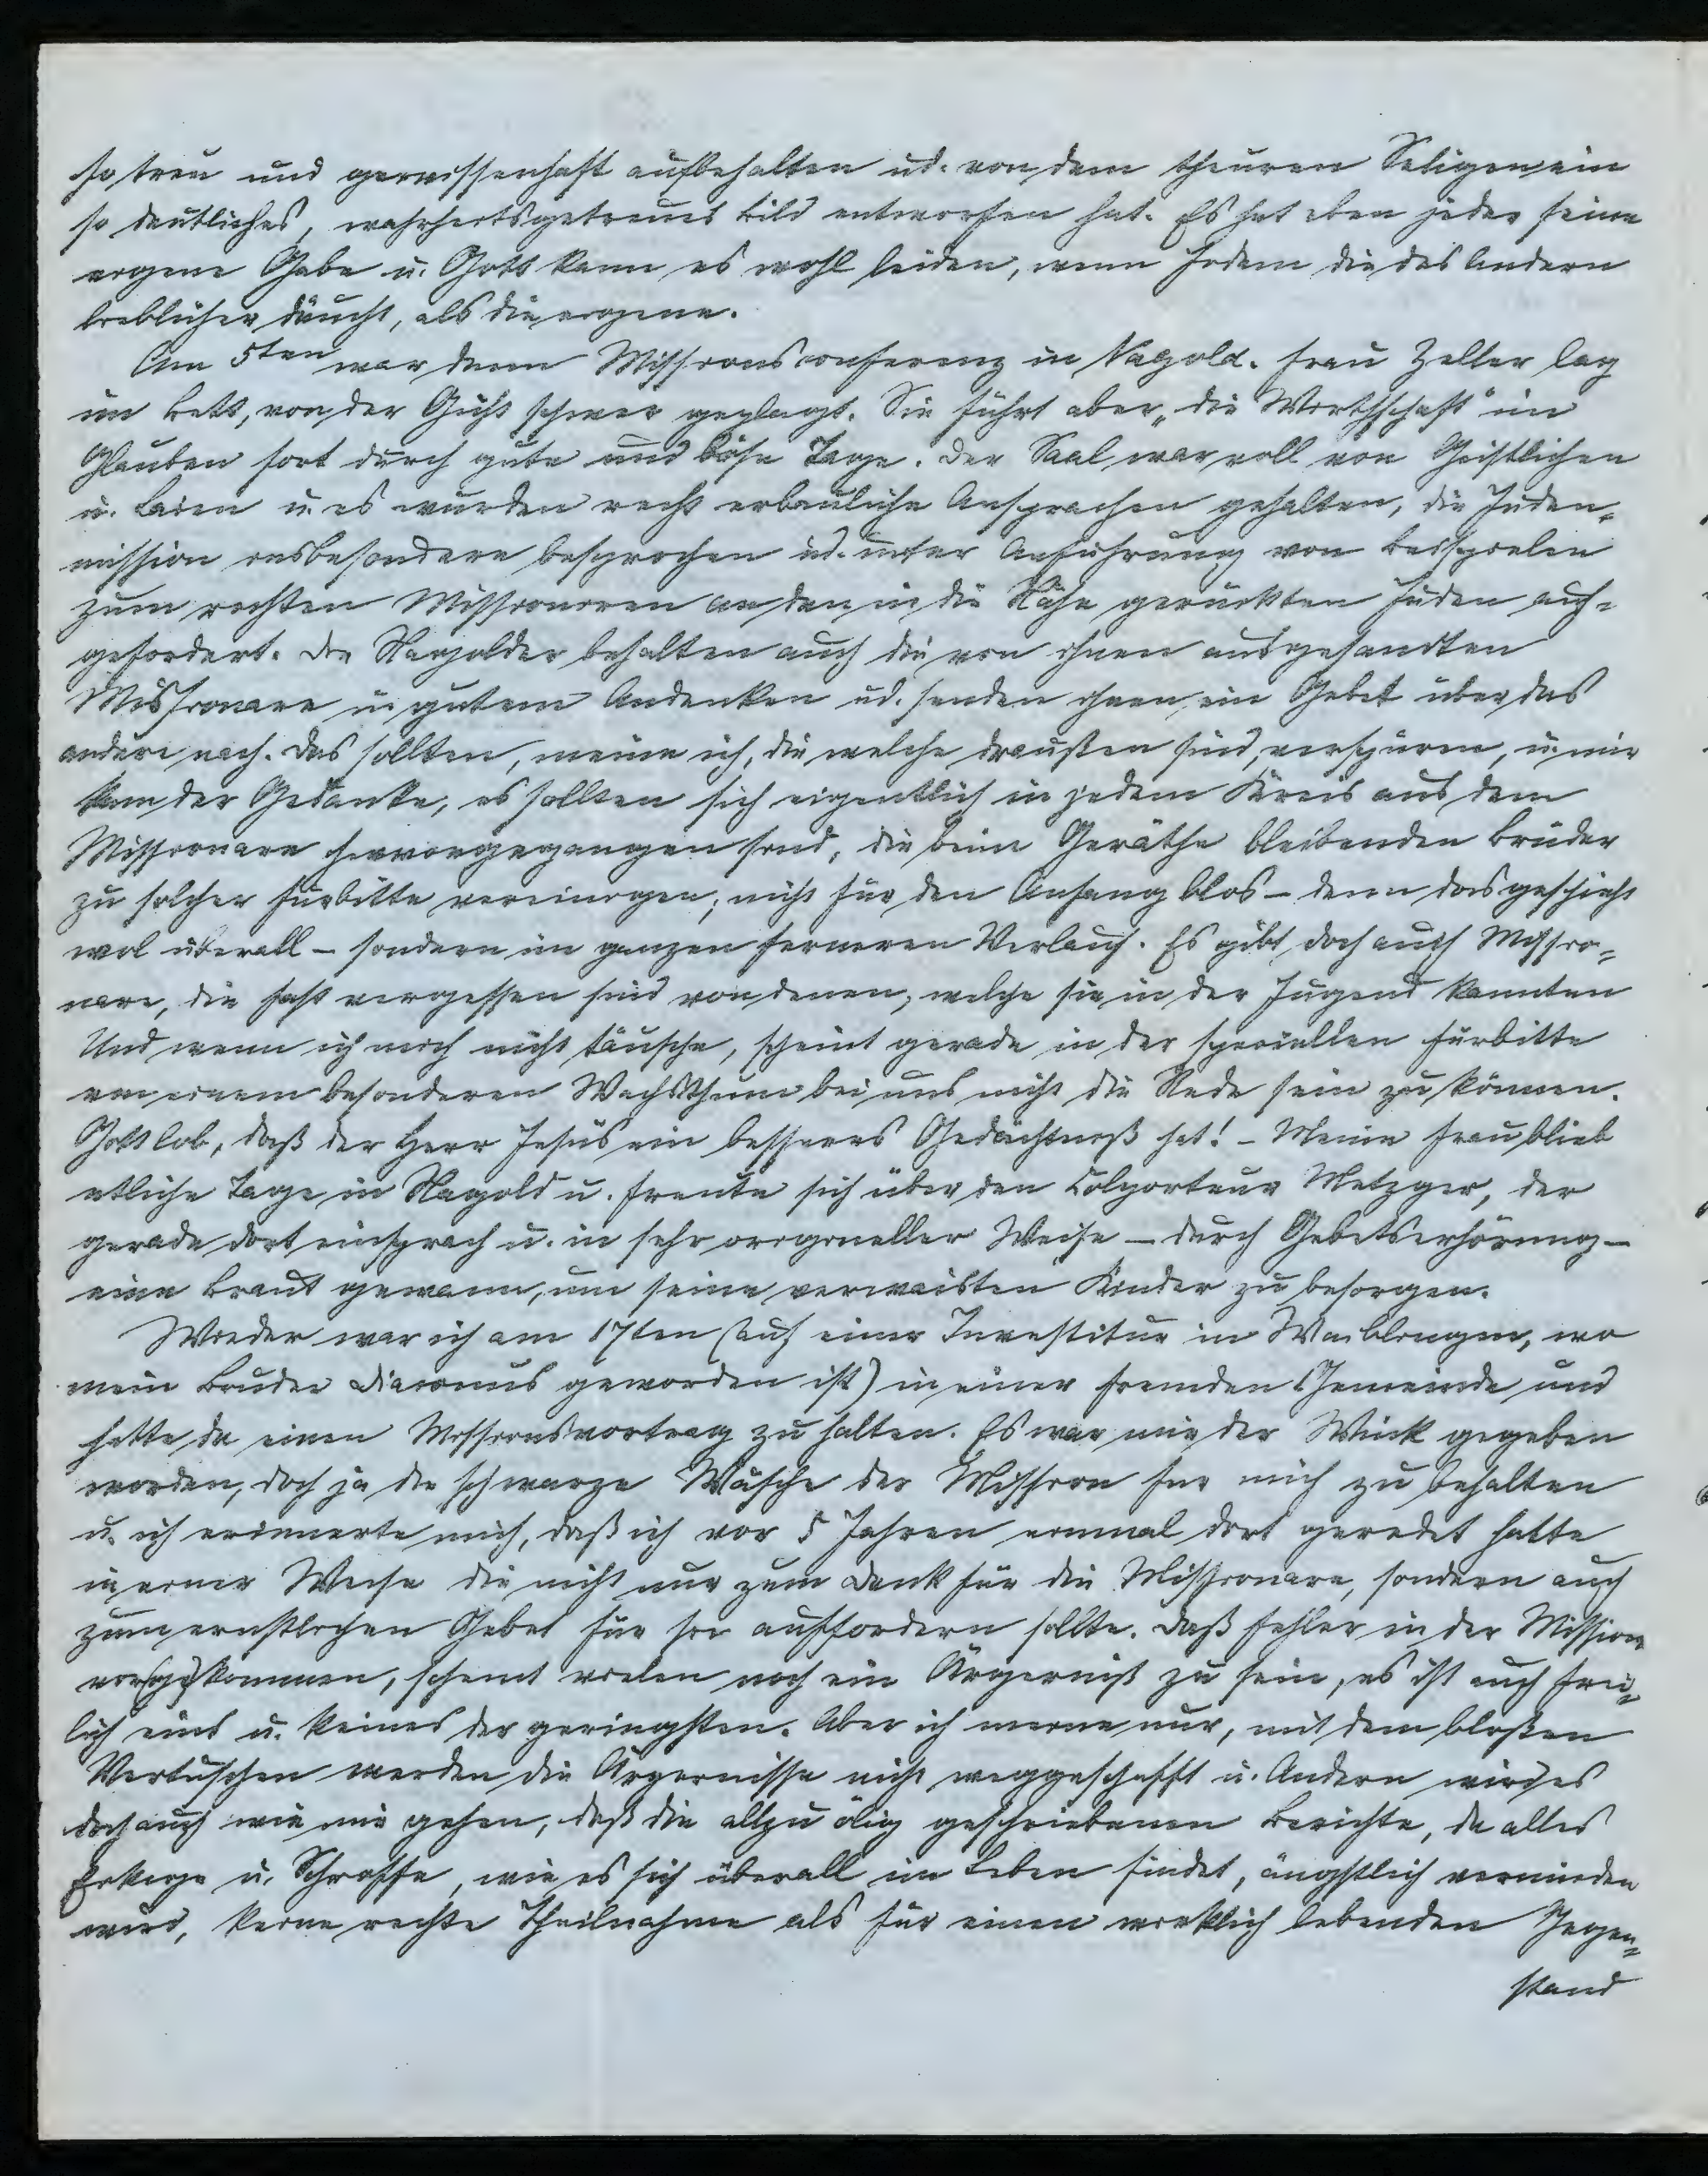 so treu und gewissenhaft aufbehalten ud. von dem theuren Seligen ein
so deutliches, wahrheitsgetreues Bild entworfen hat. Es hat eben jeder seine
eigene Gabe u. Gott kann es wohl leiden, wenn Jedem die des Andern
lieblicher däucht, als die eigene.
Am 5ten war denn Missionsconferenz in Nagold. Frau Zeller lag
im Bett, von der Gicht schwer geplagt. Sie führt aber „die Wirthschaft" im
Glauben fort durch gute und böse Tage. Der Saal war voll von Geistlichen
u. Laien u. es wurden recht erbauliche Ansprachen gehalten, die Juden-
mission insbesondere besprochen ud. unter Anführung von Beispielen
zum rechten Missioniren an den in die Nähe gerückten Juden auf-
gefordert. Die Nagolder behalten auch die von ihnen ausgesandten
Missionare in gutem Andenken ud. senden ihnen ein Gebet über das
andere nach. Das sollten, meine ich, die welche draußen sind, verspüren, u. mir
kam der Gedanke, es sollten sich eigentlich in jedem Kreis aus dem
Missionare hervorgegangen sind, die beim Geräthe bleibenden Brüder
zu solcher Fürbitte vereinigen; nicht für den Anfang blos – denn das geschieht
wol überall – sondern im ganzen ferneren Verlauf. Es gibt doch auch Missio-
nare, die fast vergessen sind von denen, welche sie in der Jugend kannten
Und wenn ich mich nicht täusche, scheint gerade in der speciellen Fürbitte
von einem besonderen Wachsthum bei uns nicht die Rede sein zu können.
Gott lob, daß der Herr Jesus ein besseres Gedächtniß hat! – Meine Frau blieb
etliche Tage in Nagold u. freute sich über den Colporteur Metzger, der
gerade dort einsprach u. in sehr origineller Weise – durch Gebetserhörung –
eine Braut gewann, um seine verwaisten Kinder zu besorgen.
Wieder war ich am 17ten (auf einer Investitur in Waiblingen, wo
mein Bruder Diaconus geworden ist) in einer fremden Gemeinde und
hatte da einen Missionsvortrag zu halten. Es war mir der Wink gegeben
worden, doch ja die schwarze Wäsche der Mission für mich zu behalten
u. ich erinnerte mich, daß ich vor 5 Jahren einmal dort geredet hatte
in einer Weise die nicht nur zum Dank für die Missionare, sondern auch
zum ernstlichen Gebet für sie auffordern sollte. Daß Fehler in der Mission
vor(ge)kommen, scheint vielen noch ein Ärgerniß zu sein, es ist auch frei-
lich eins u. keines der geringsten. Aber ich meine nur, mit dem bloßen
Vertuschen werden die Ärgernisse nicht weggeschafft u. Andern wird es
doch auch wie mir gehen, daß die allzu ölig geschriebenen Berichte, da alles
Eckige u. Schroffe, wie es sich überall im Leben findet, ängstlich vermieden
wird, keine rechte Theilnahme als für einen wirklich lebenden Gegen-
stand